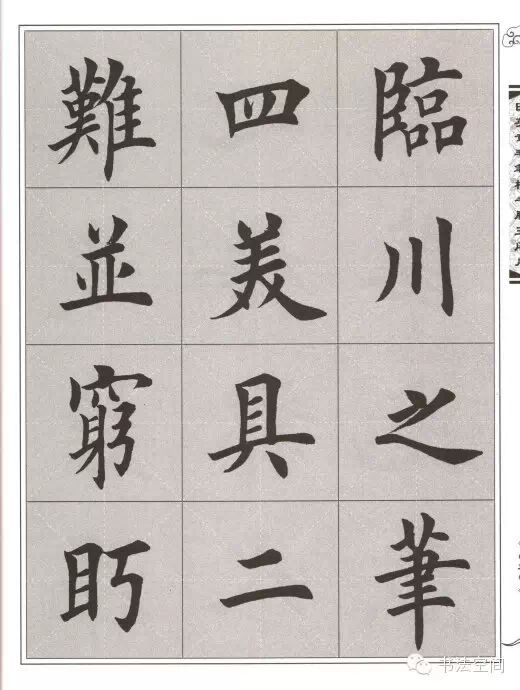 臨川之筆
四美具二
難並窮眄
书法空间